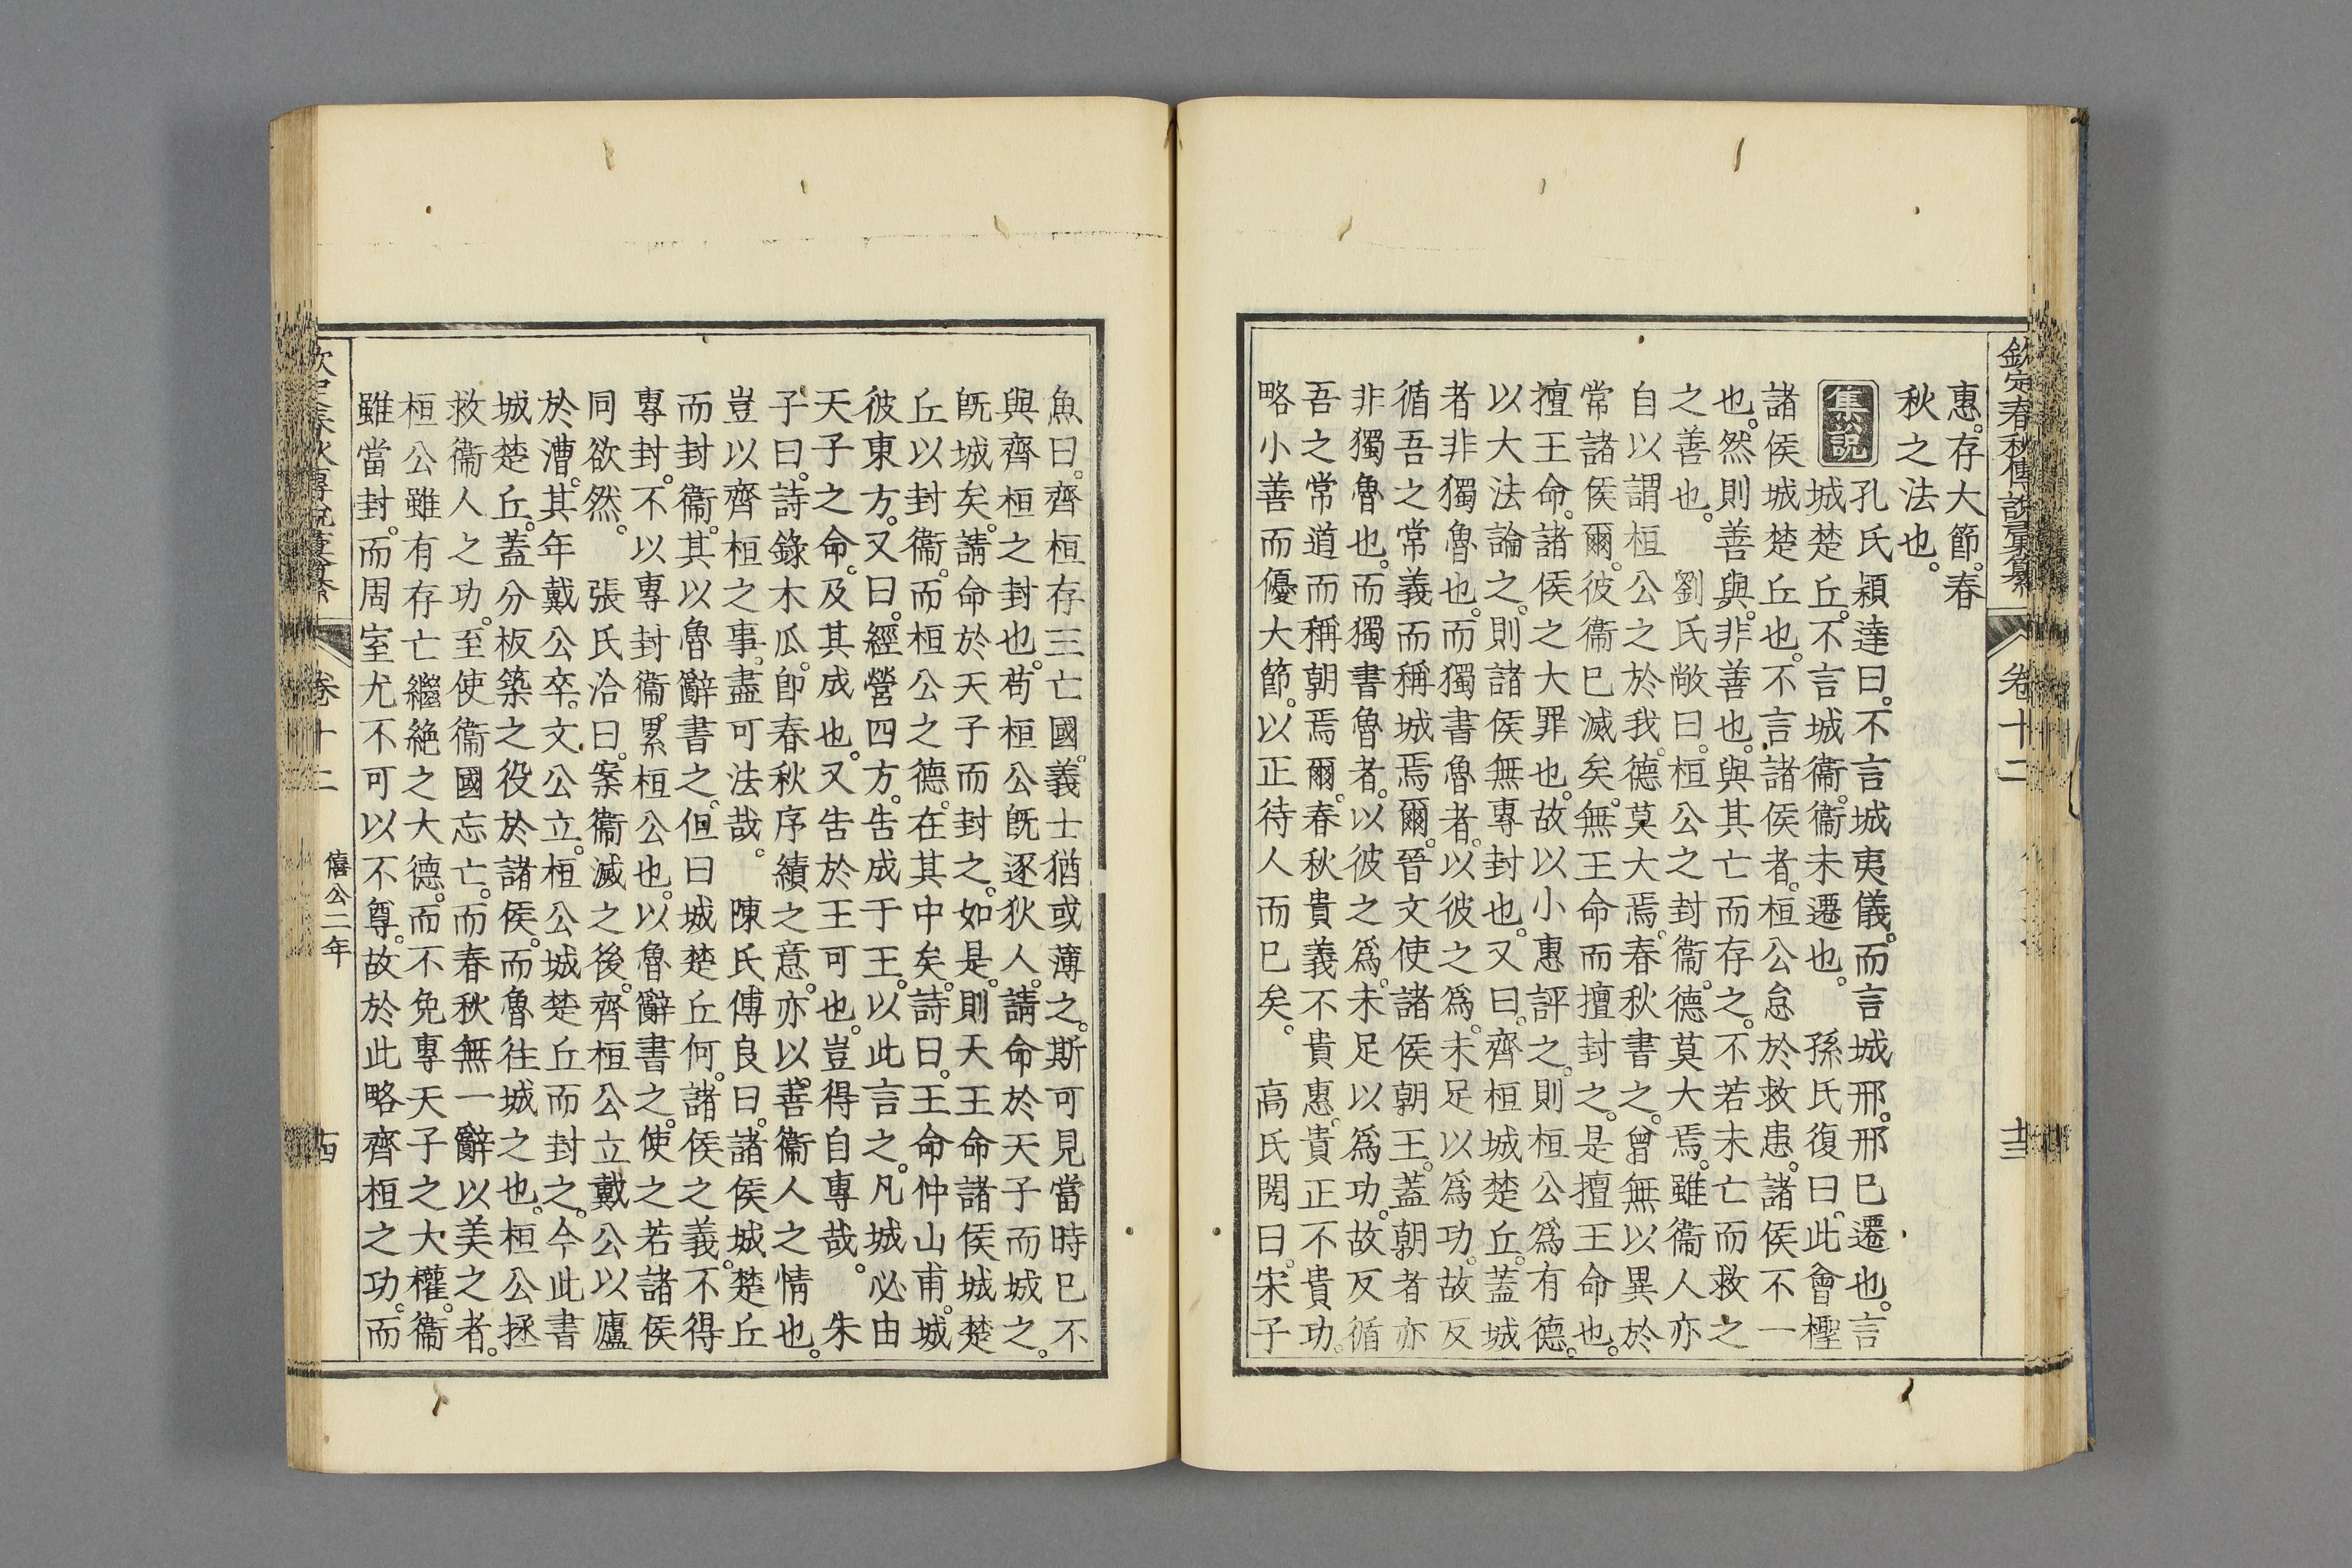 欽定春秋傳說彙纂 卷十二 十三
惠。存大節。春
秋之法也。
集說 孔氏穎達曰。不言城夷儀。而言城邢。邢巳遷也。言
城楚丘。不言城衞。衞未遷也。 孫氏復曰。此會檉
諸侯城楚丘也。不言諸侯者。桓公怠於救患。諸侯不一
也。然則善與。非善也。與其亡而存之。不若未亡而救之
之善也。 劉氏敞曰。桓公之封衞。德莫大焉。雖衞人亦
自以謂桓公之於我。德莫大焉。春秋書之。曾無以異於
常諸侯爾。彼衞巳滅矣。無王命而擅封之。是擅王命也。
擅王命。諸侯之大罪也。故以小惠評之。則桓公爲有德。
以大法論之。則諸侯無專封也。又曰。齊桓城楚丘。蓋城
者非獨魯也。而獨書魯者。以彼之爲。未足以爲功。故反
循吾之常義而稱城焉爾。晉文使諸侯朝王。蓋朝者亦
非獨魯也。而獨書魯者。以彼之爲。未足以爲功。故反循
吾之常道而稱朝焉爾。春秋貴義不貴惠。貴正不貴功。
略小善而優大節。以正待人而巳矣。 高氏閌曰。宋子
魚曰。齊桓存三亡國。義士猶或薄之。斯可見當時巳不
與齊桓之封也。苟桓公旣逐狄人。請命於天子而城之。
旣城矣。請命於天子而封之。如是。則天王命諸侯城楚
丘以封衞。而桓公之德。在其中矣。詩曰。王命仲山甫。城
彼東方。又曰。經營四方。告成于王。以此言之。凡城必由
天子之命。及其成也。又告於王可也。豈得自專哉。 朱
子曰。詩錄木瓜。卽春秋序績之意。亦以善衞人之情也。
豈以齊桓之事。盡可法哉。 陳氏傅良曰。諸侯城楚丘
而封衞。其以魯辭書之。但曰城楚丘何。諸侯之義。不得
專封。不以專封衞。累桓公也。以魯辭書之。使之若諸侯
同欲然。 張氏洽曰。案衞滅之後。齊桓公立戴公以廬
於漕。其年戴公卒。文公立。桓公城楚丘而封之。今此書
城楚丘。蓋分板築之役於諸侯。而魯往城之也。桓公拯
救衞人之功。至使衞國忘亡。而春秋無一辭以美之者。
桓公雖有存亡繼絶之大德。而不免專天子之大權。衞
雖當封。而周室尤不可以不尊。故於此略齊桓之功。而
春秋傳說彙纂 卷十二 僖公二年